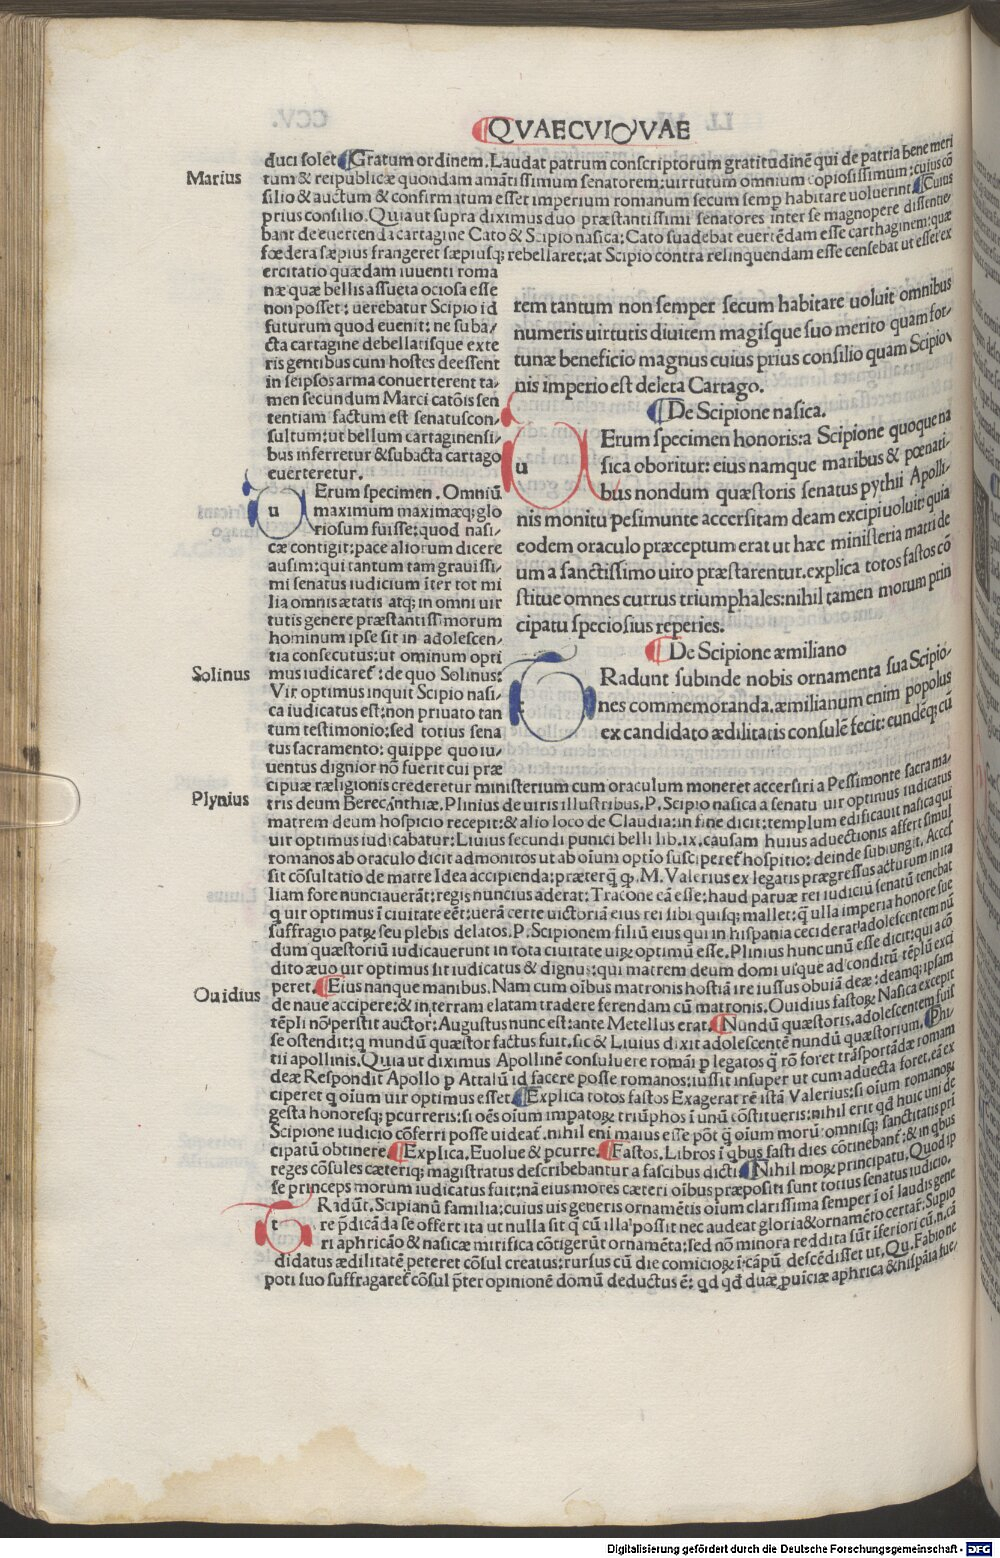 QVAECVIQVAE
duci solet Gratum ordinem. Laudat patrum conscriptorum gratitudinē qui de patria bene meri
Marius
tum & reipublicæ quondam amātissimum senatorem: uirtutum omnium copiosissimum: cuius cō
silio & auctum & confirmatum esset imperium romanum secum semp habitare uoluerint Cuius
prius consilio. Quia ut supra diximus duo præstantissimi senatores inter se magnopere dissentie
bant de euertenda cartagine Cato & Scipio nasica: Cato suadebat euertēdam esse carthaginem: quæ
fœdera sæpius frangeret sæpiusq; rebellaret: at Scipio contra relinquendam esse censebat ut esset ex
ercitatio quædam iuuenti roma
næ quæ bellis assueta ociosa esse
non posset: uerebatur Scipio id
futurum quod euenit: ne suba/
cta cartagine debellatisque exte
ris gentibus cum hostes deessent
in seipsos arma conuerterent ta/
men secundum Marci catōis sen
tentiam factum est senatuscon/
sultum: ut bellum cartaginensi/
bus inferretur & subacta cartago
euerteretur.
u Erum specimen. Omniū
maximum maximæq; glo
riosum fuisse: quod nasi/
cæ contigit: pace aliorum dicere
ausim: qui tantum tam grauissi/
mi senatus iudicium īter tot mi
lia omnis ætatis atq; in omni uir
tutis genere præstantissimorum
hominum ipse sit in adolescen/
tia consecutus: ut ominum opti
Solinus
mus iudicaret: de quo Solinus:
Vir optimus inquit Scipio nasi/
ca iudicatus est: non priuato tan
tum testimonio: sed totius sena
tus sacramento: quippe quo iu/
uentus dignior nō fuerit cui præ
rem tantum non semper secum habitare uoluit omnibus
numeris uirtutis diuitem magisque suo merito quam for/
tunæ beneficio magnus cuius prius consilio quam Scipio/
nis imperio est deleta Cartago.
De Scipione nasica.
u Erum specimen honoris: a Scipione quoque na
sica oboritur: eius namque manibus & pœnati/
bus nondum quæstoris senatus pythii Apolli/
nis monitu pesimunte accersitam deam excipi uoluit: quia
eodem oraculo præceptum erat ut hæc ministeria matri de
um a sanctissimo uiro præstarentur. explica totos fastos cō
stitue omnes currus triumphales: nihil tamen morum prin
cipatu speciosius reperies.
De Scipione æmiliano
t Radunt subinde nobis ornamenta sua Scipio/
nes commemoranda. æmilianum enim populus
ex candidato ædilitatis consulē fecit: eundēq; cū
cipuæ ræligionis crederetur ministerium cum oraculum moneret accersiri a Pessimonte sacra ma/
Plynius
tris deum Berecinthiæ. Plinius de uiris illustribus. P. Scipio nasica a senatu uir optimus iudicatus
matrem deum hospicio recepit: & alio loco de Claudia: in fine dicit: templum edificauit nasica qui
uir optimus iudicabatur: Liuius secundi punici belli lib. ix. causam huius aduectionis affert simul
romanos ab oraculo dicit admonitos ut ab oium optīo susciperet hospitio: deinde subiungit. Acces
sit cōsultatio de matre Idea accipienda: præterq̄ ꝙ. M. Valerius ex legatis prægressus acturum in ita
liam fore nunciauerāt: regis nuncius aderat: Tracone cā esse: haud paruæ rei iudiciū senatū tenebat
q̄ uir optimus ī ciuitate eēt: uerā certe uictoriā eius rei sibi quisq; mallet: q̄ ulla imperia honore sue
suffragio patꝝ seu plebis delatos. P. Scipionem filiū eius qui in hispania ceciderat adolescentem nū
dum quæstoriū iudicauerunt in tota ciuitate uiꝝ optimū esse. Plinius hunc unū esse dicit: qui a cō
dito æuo uir optimus sit iudicatus & dignus: qui matrem deum domi usque ad conditū tēplū exci
Ouidius
peret. Eius nanque manibus. Nam cum oibus matronis hostiā ire iussus obuiā deæ: deamq; ipsam
de naue accipere: & in terram elatam tradere ferendam cū matronis. Ouidius fastoꝝ Nasica excepit
tēpli nō perstit auctor: Augustus nunc est: ante Metellus erat. Nundū quæstoris. adolescentem suis
se ostendit: q mundū quæstor factus fuit. sic & Liuius dixit adolescentē nundū quæstorium. Phi/
tii apollinis. Quia ut diximus Apollinē consuluere romāi p legatos q̄ rō foret trāsportādæ romam
deæ Respondit Apollo p Attalū id facere posse romanos: iussit insuper ut cum aduecta foret. eā ex
ciperet q oium uir optimus esset. Explica totos fastos Exagerat rē istā Valerius: si oium romanoꝝ
gesta honoresq; pcurreris: si oēs oium impatoꝝ triūphos ī unū cōstitueris: nihil erit qd huic uni de
Scipione iudicio cōferri posse uideat. nihil eni maius esse pōt q̄ oium morū omnisq; sanctitatis pri
cipatū obtinere. Explica. Euolue & pcurre. Fastos. Libros ī qbus fasti dies cōtinebant: & in qbus
reges cōsules cæteriq; magistratus describebantur a fascibus dicti. Nihil moꝝ principatu. Quod ip
se princeps morum iudicatus fuit: nā eius mores cæteri oibus præpositi sunt totius senatus iudicio.
t Radūt. Scipianū familia: cuius uis generis ornamētis oium clarissima semper ī oī laudis gene
re pdicāda se offert ita ut nulla sit q̄ cū illa possit nec audeat gloria & ornamēto certar. Supio
ri aphricāo & nasicæ mirifica cōtigerūt ornamēta: sed nō minora reddita sūt īferiori cū. n. cā
didatus ædilitatē peteret cōsul creatus: rursus cū die comicioꝝ ī cāpū descēdisset ut. Qu. Fabione
poti suo suffragaret cōsul pter opinionē domū deductus ē: qd qd duæ puiciæ aphrica & hispāia sue/
Digitalisierung gefördert durch die Deutsche Forschungsgemeinschaft - DFG